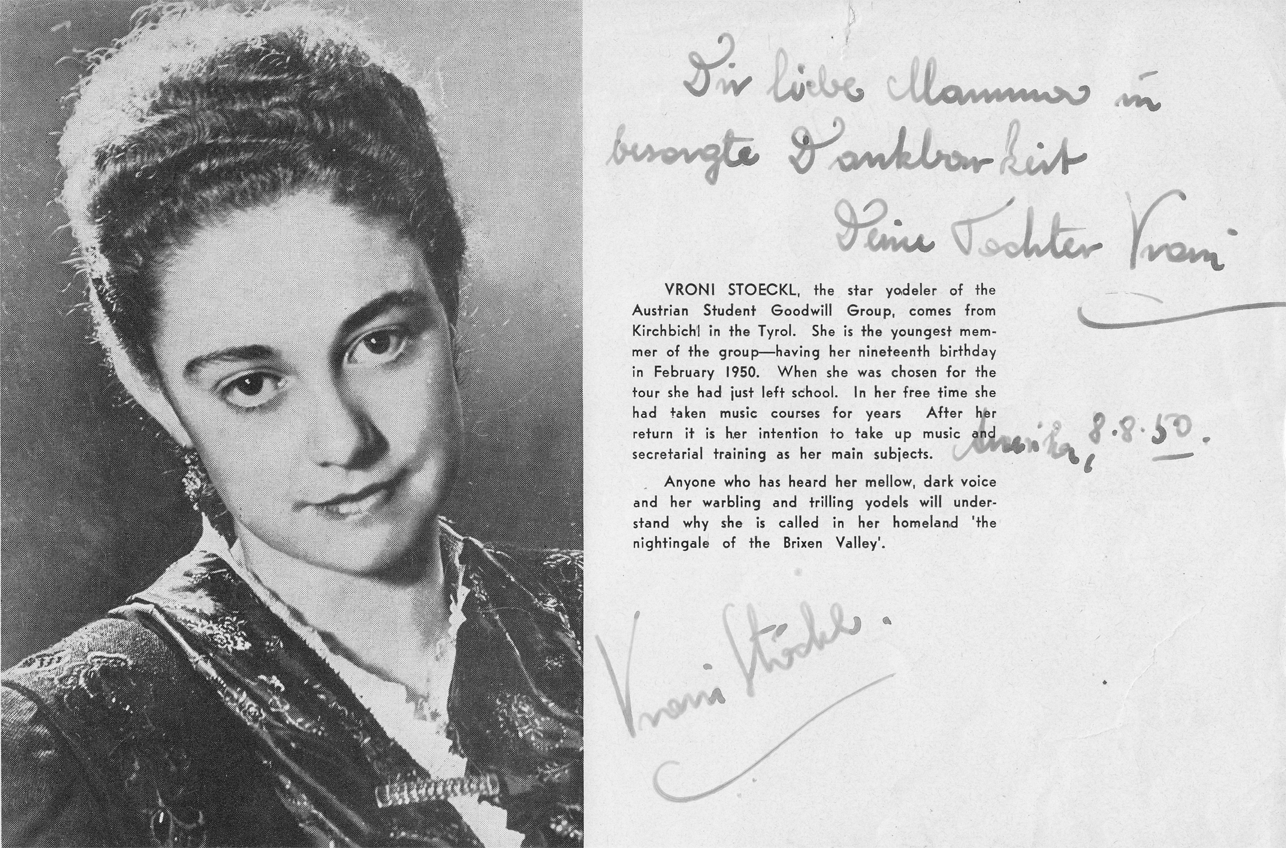 Dir liebe Mamma in
besorgte Dankbarkeit
Deine Tochter Vroni
VRONI STOECKL, the star yodeler of the
Austrian Student Goodwill Group, comes from
Kirchbichl in the Tyrol. She is the youngest mem-
mer of the group—having her nineteenth birthday
in February 1950. When she was chosen for the
tour she had just left school. In her free time she
had taken music courses for years After her
return it is her intention to take up music and
secretarial training as her main subjects.
Amerika, 8.8.50.
Anyone who has heard her mellow, dark voice
and her warbling and trilling yodels will under-
stand why she is called in her homeland 'the
nightingale of the Brixen Valley'.
Vroni Stöckl.